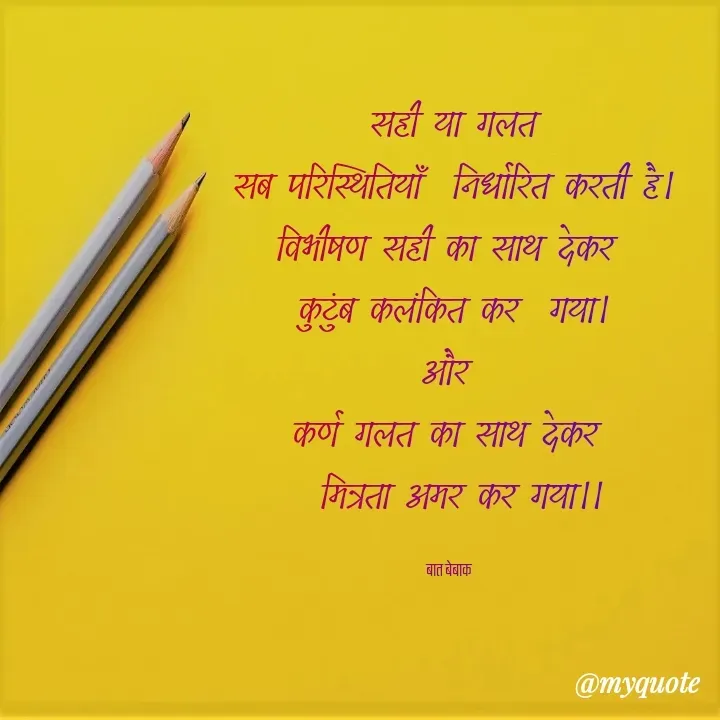 सही या गलत
सब परिस्थितियाँ निर्धारित करती है।
विभीषण सही का साथ देकर
कुटुंब कलंकित कर गया।
और
कर्ण गलत का साथ देकर
मित्रता अमर कर गया।।
बात बेबाक
@myquote